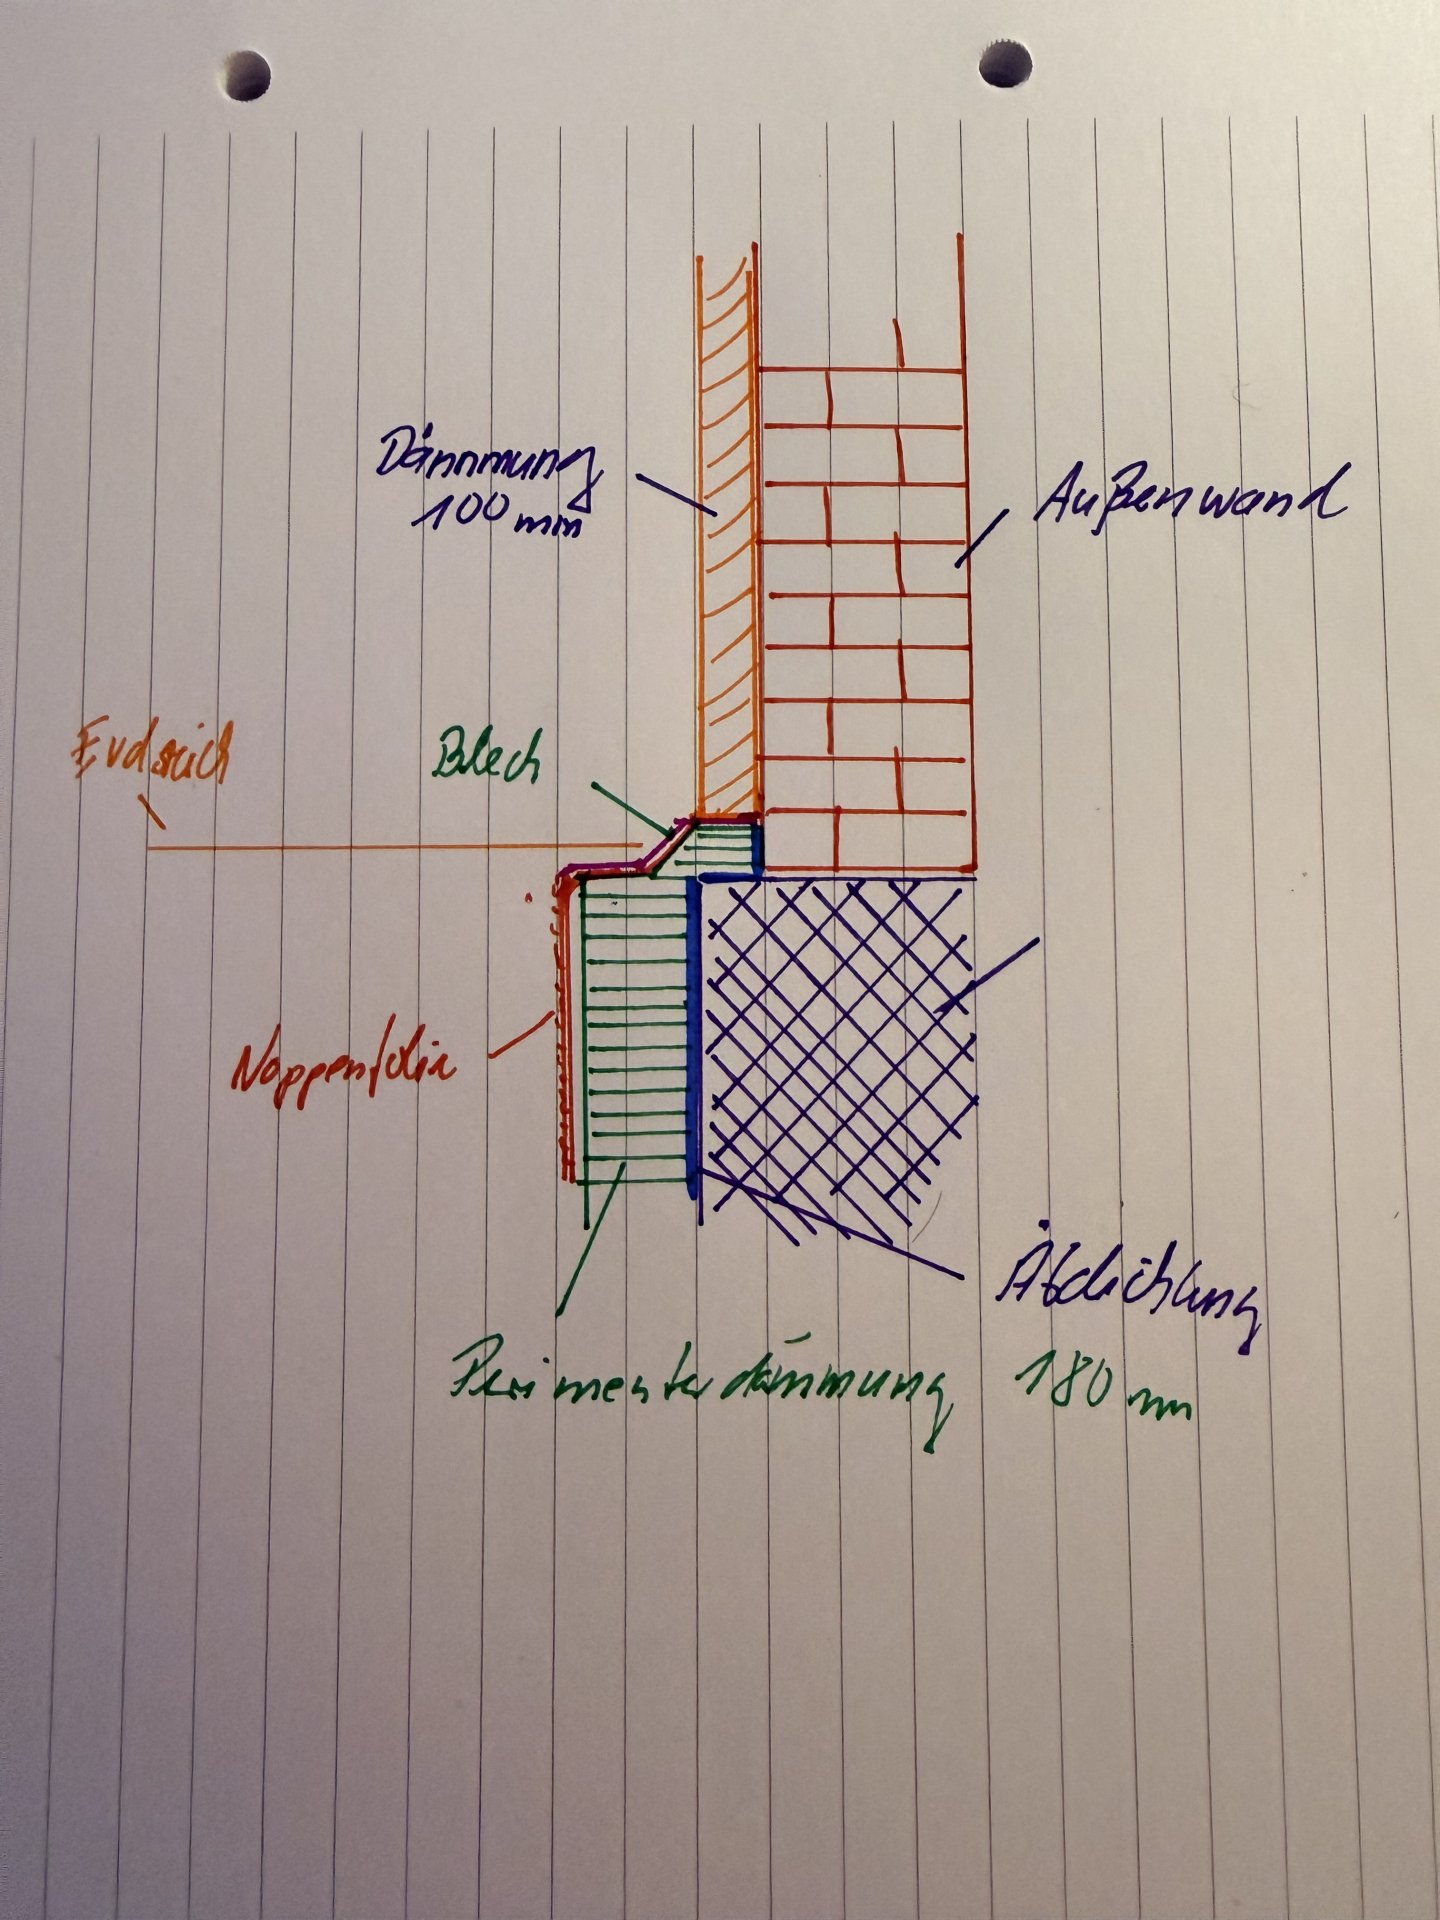 Dämmung
100 mm
Außenwand
Erdreich
Blech
Noppenfolie
Abdichtung
Perimeterdämmung 180 mm